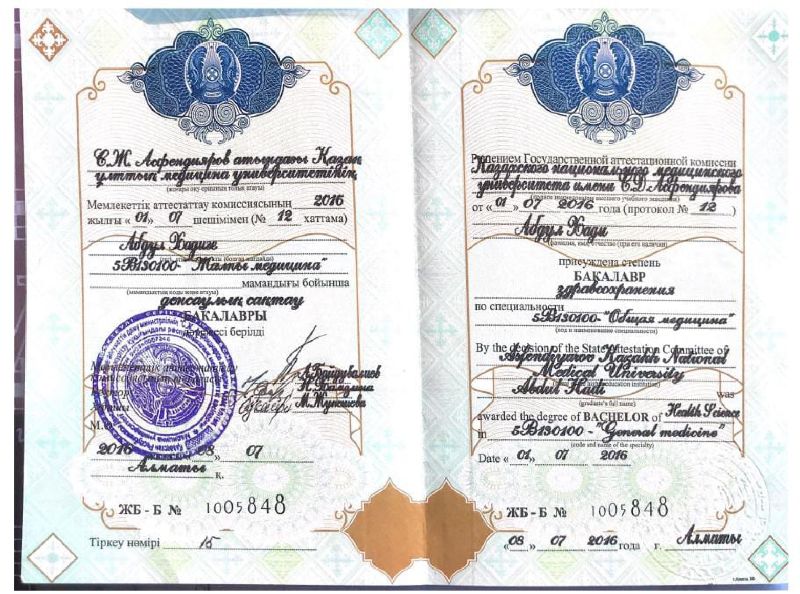 С.Ж. Асфендияров атындағы Қазақ
ұлттық медицина университетінің
(жоғары оқу орнының толық атауы)
Мемлекеттік аттестаттау комиссиясының 2016
жылғы « 01 » 07 шешімімен (№ 12 хаттама)
Абдул Хадиге
5В130100- "Жалпы медицина"
мамандығы бойынша
(мамандықтың коды және атауы)
денсаулық сақтау
БАКАЛАВРЫ
дәрежесі берілді
Мемлекеттік аттестаттау
комиссиясының төрағасы
Ректор
М.О.
2016 08 07
Алматы қ.
ЖБ - Б № 1005848
Тіркеу нөмірі 15
Решением Государственной аттестационной комиссии
Казахского национального медицинского
университета имени С.Д.Асфендиярова
от « 01 » 07 2016 года (протокол № 12 )
Абдул Хади
(фамилия, имя, отчество (при его наличии)
присуждена степень
БАКАЛАВР
здравоохранения
по специальности
5В130100- "Общая медицина"
(код и наименование специальности)
By the decision of the State Attestation Committee of
Asfendiyarov Kazakh National
Medical University
Abdul Hadi was
(graduate's full name)
awarded the degree of BACHELOR of Health Science
in 5B130100 - "General medicine"
(code and name of the specialty)
Date « 01 » 07 2016
ЖБ - Б № 1005848
« 08 » 07 2016 года г. Алматы